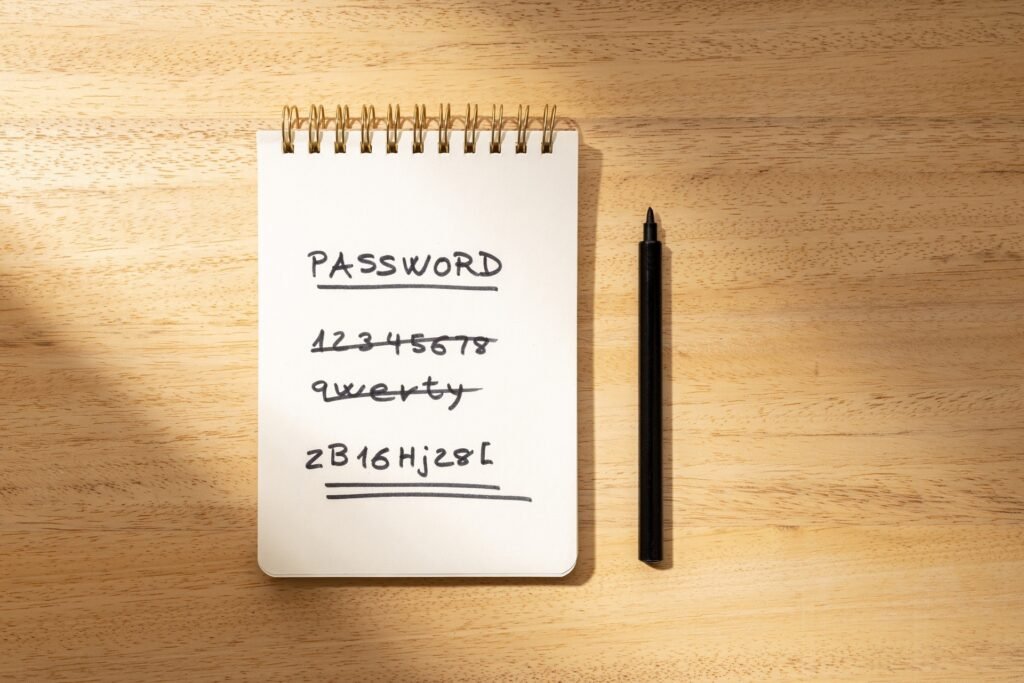 PASSWORD
12345678
qwerty
zB16Hj28[